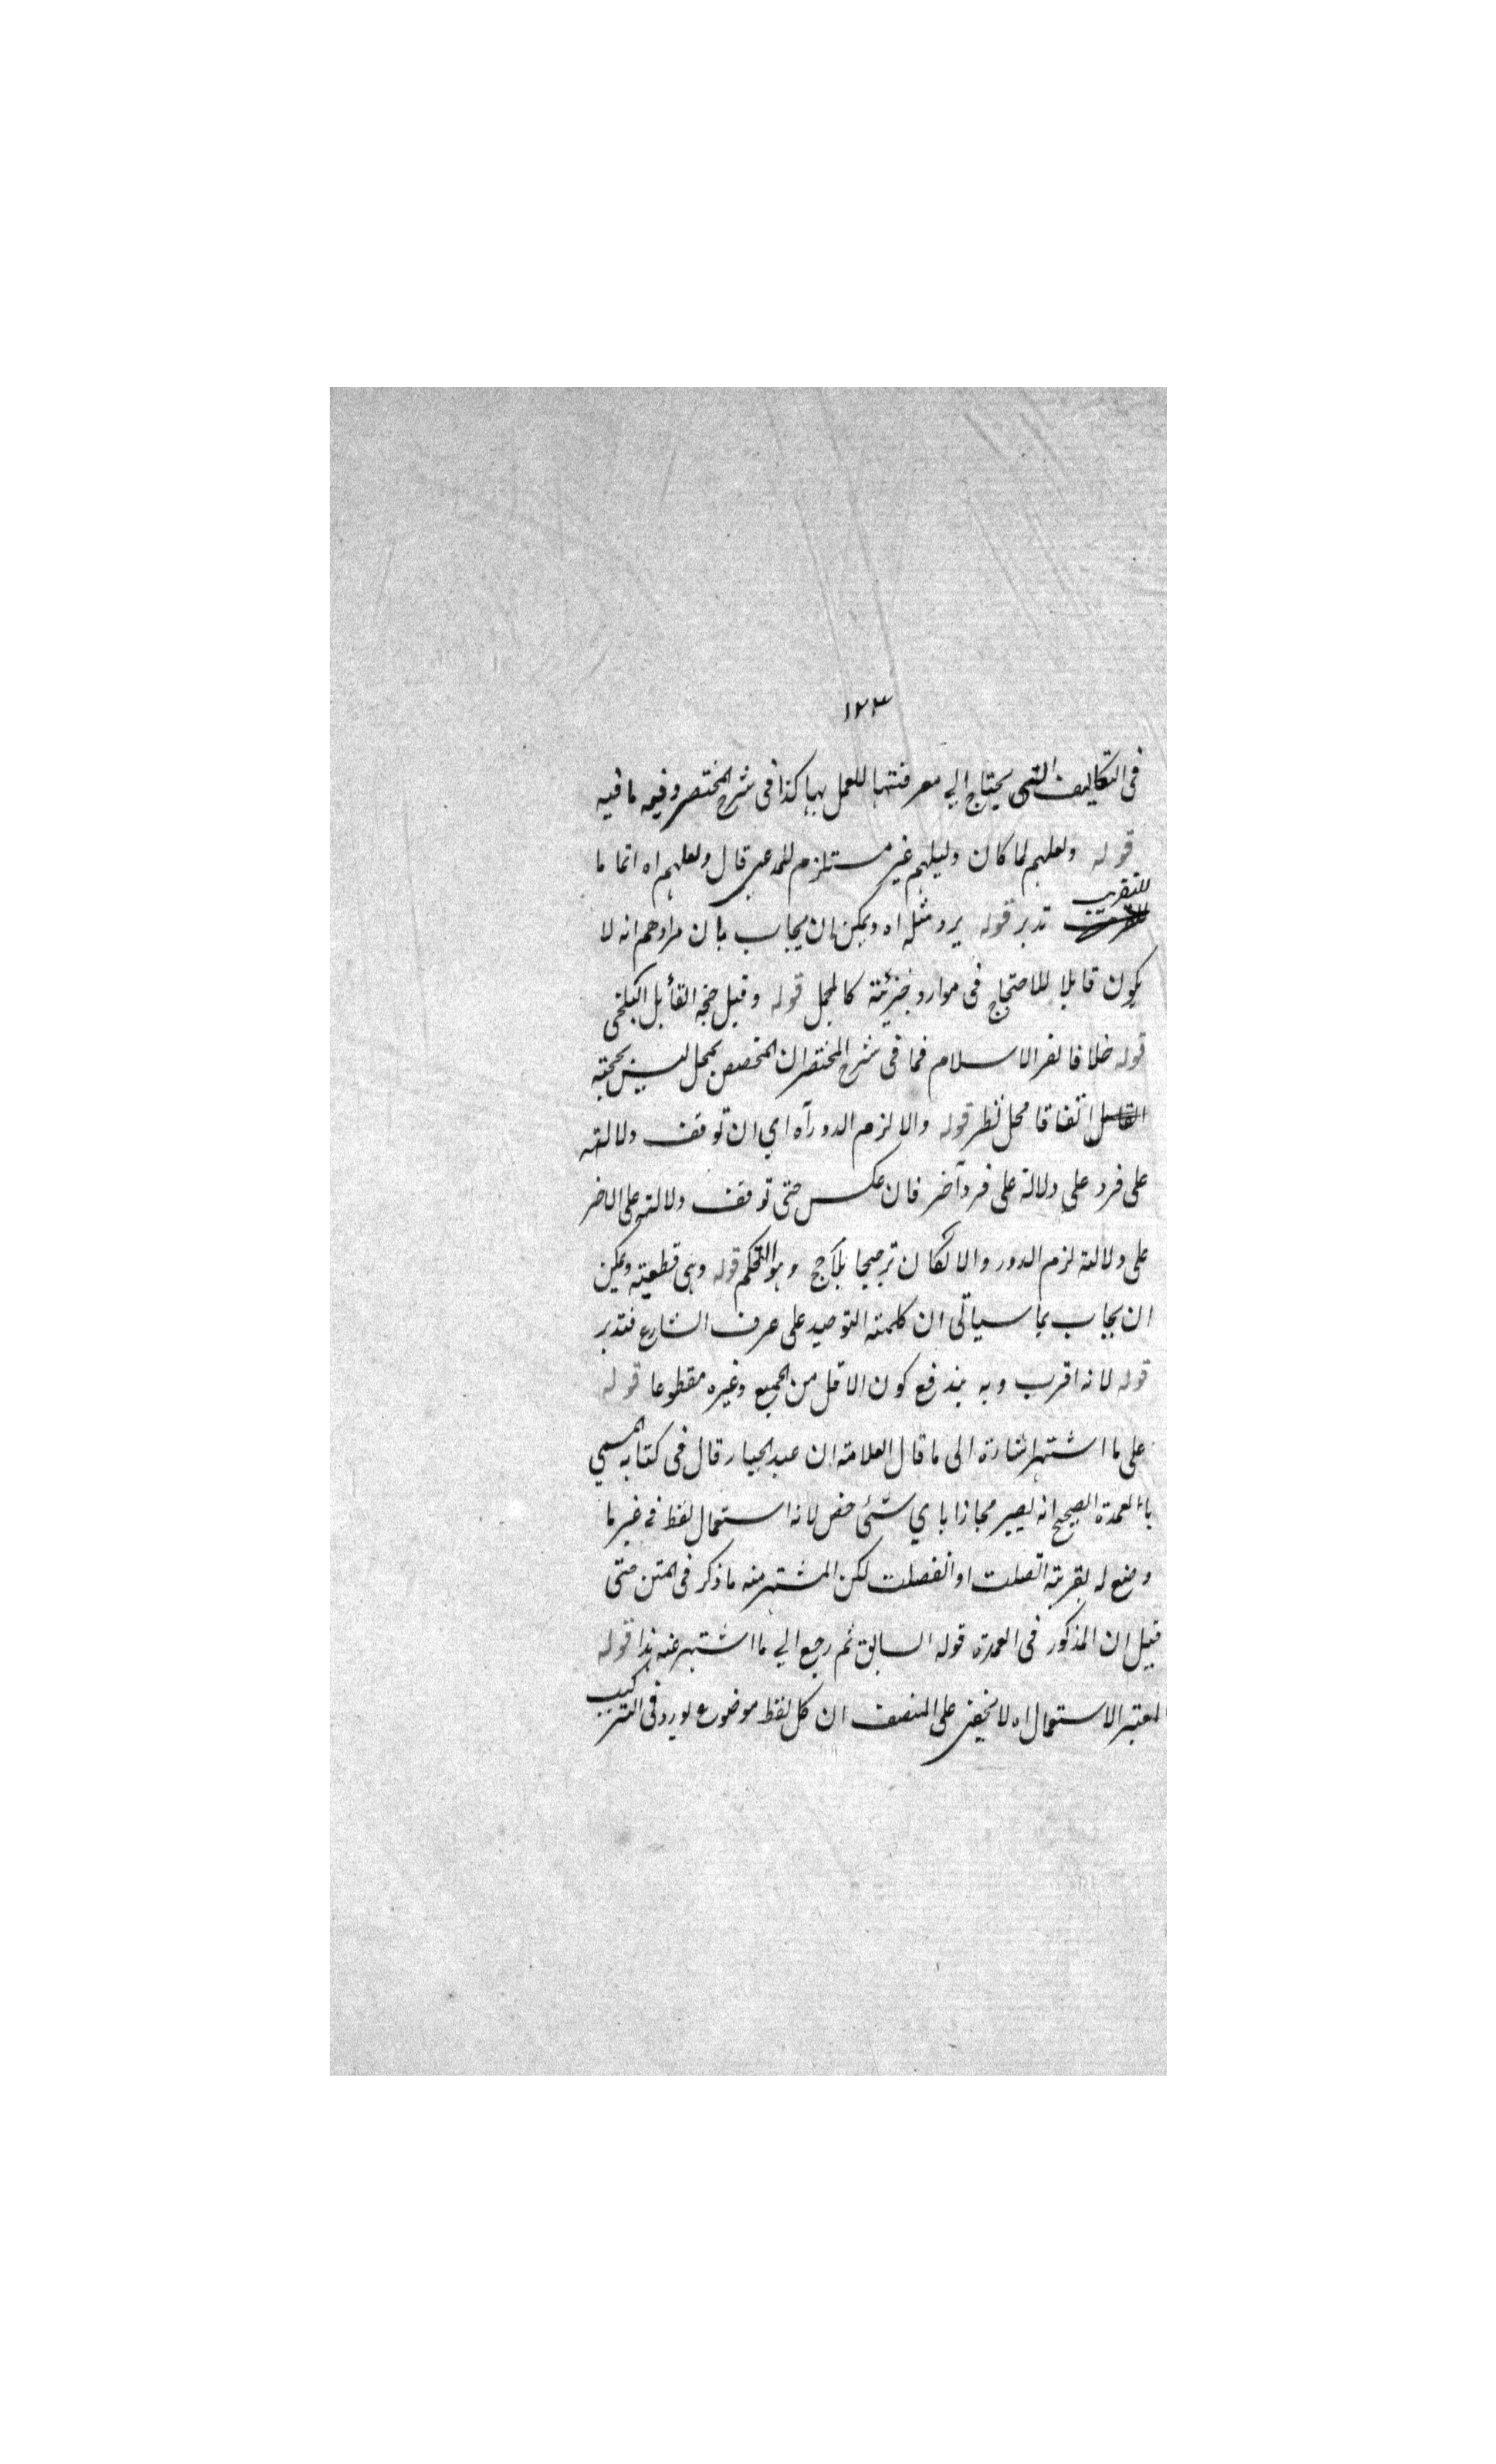 ١٢٣
فى التكاليف التى يحتاج الي معرفتها للعمل بها كذا فى شرح المختصر وفيه ما فيه
قوله ولعلهم لما كان دليلهم غير مستلزم للمدعى قال ولعلهم اه اتما ما
للتقريب
تدبر قوله يرد مثله اه ويمكن ان يجاب بان مرادهم انه لا
يكون قابلا للاحتجاج فى موارد جزئية كالمجمل قوله وقيل حجة القائل البلخى
قوله خلافا لفخر الاسلام فما فى شرح المختصر ان المخصص بمجمل ليس بحجة
اتفاقا محل نظر قوله والا لزم الدور آه اي ان توقف دلالته
على فرد على دلالة على فرد آخر فان عكس حتى توقف دلالته على الاخر
على دلالته لزم الدور والا لكان ترجيحا بلا رجح وهو التحكم قوله وهى قطعية ويمكن
ان يجاب بما سيأتى ان كلمة التوحيد على عرف الشارع فتدبر
قوله لانه اقرب وبه يندفع كون الاقل من الجميع وغيره مقطوعا قوله
على ما اشتهر اشارة الى ما قال العلامة ان عبد الجبار قال فى كتابه المسمى
بالعمدة الصحيح انه يصير مجازا باي شئى خص لانه استعمال لفظ فى غير ما
وضع له بقرينة اتصلت او انفصلت لكن المشتهر منه ما ذكر فى المتن حتى
قيل ان المذكور فى العمدة قوله السابق ثم رجع الي ما اشتهر عنه هذا قوله
المعتبر الاستعمال اه لا يخفى على المنصف ان كل لفظ موضوع لو ورد فى التركيب